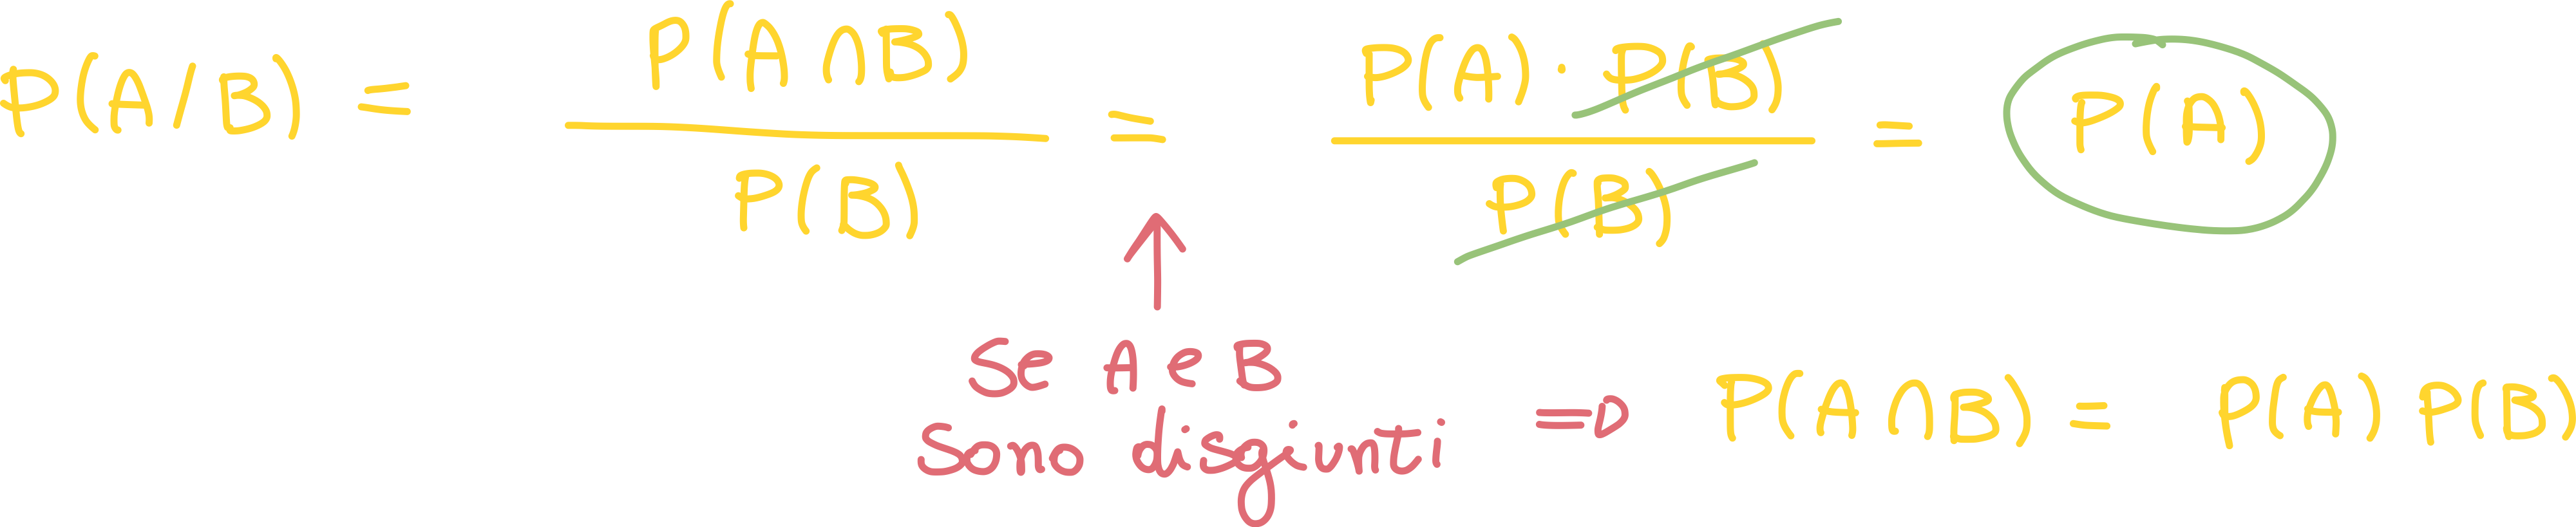 P(A/B) = P(A∩B) / P(B) = P(A) · P(B) / P(B) = P(A)
Se A e B
sono disgiunti => P(A∩B) = P(A) P(B)